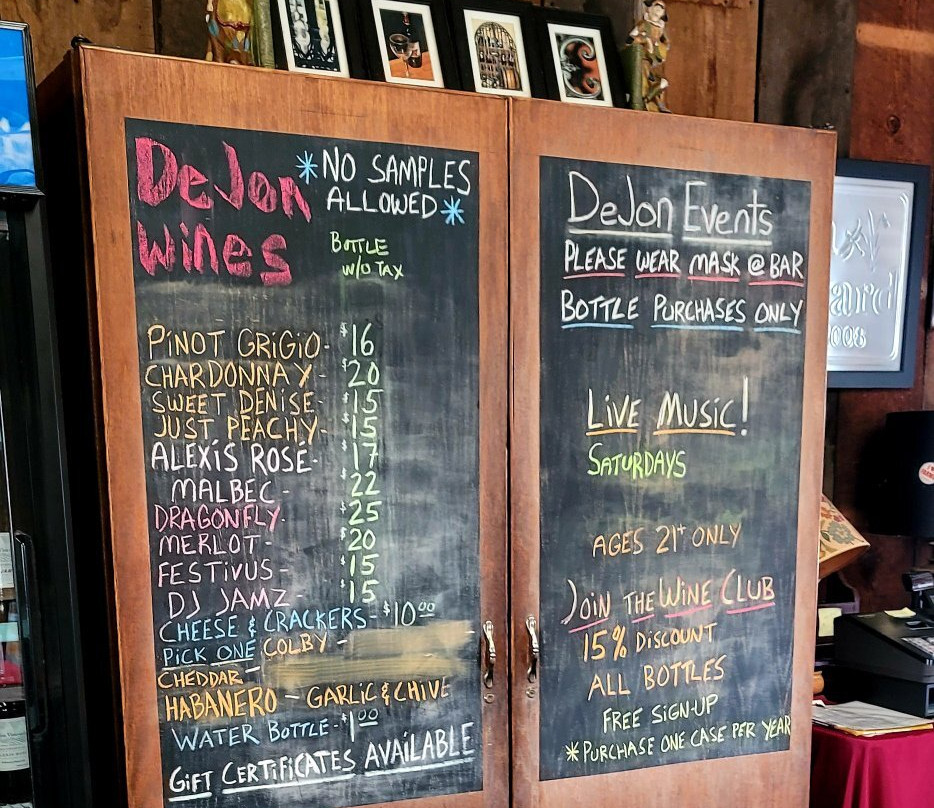 DeJon
Wines
*NO SAMPLES
ALLOWED*
BOTTLE
W/O TAX
PINOT GRIGIO- $16
CHARDONNAY- $20
SWEET DENISE- $15
JUST PEACHY- $15
ALEXIS ROSÉ- $17
MALBEC- $22
DRAGONFLY- $25
MERLOT- $20
FESTIVUS- $15
DJ JAMZ- $15
CHEESE & CRACKERS- $10.00
PICK ONE COLBY -
CHEDDAR-
HABANERO - GARLIC & CHIVE
WATER BOTTLE-$1.00
GIFT CERTIFICATES AVAILABLE
DeJon Events
PLEASE WEAR MASK @ BAR
BOTTLE PURCHASES ONLY
LIVE MUSIC!
SATURDAYS
AGES 21+ ONLY
JOIN THE WINE CLUB
15% DISCOUNT
ALL BOTTLES
FREE SIGN-UP
*PURCHASE ONE CASE PER YEAR